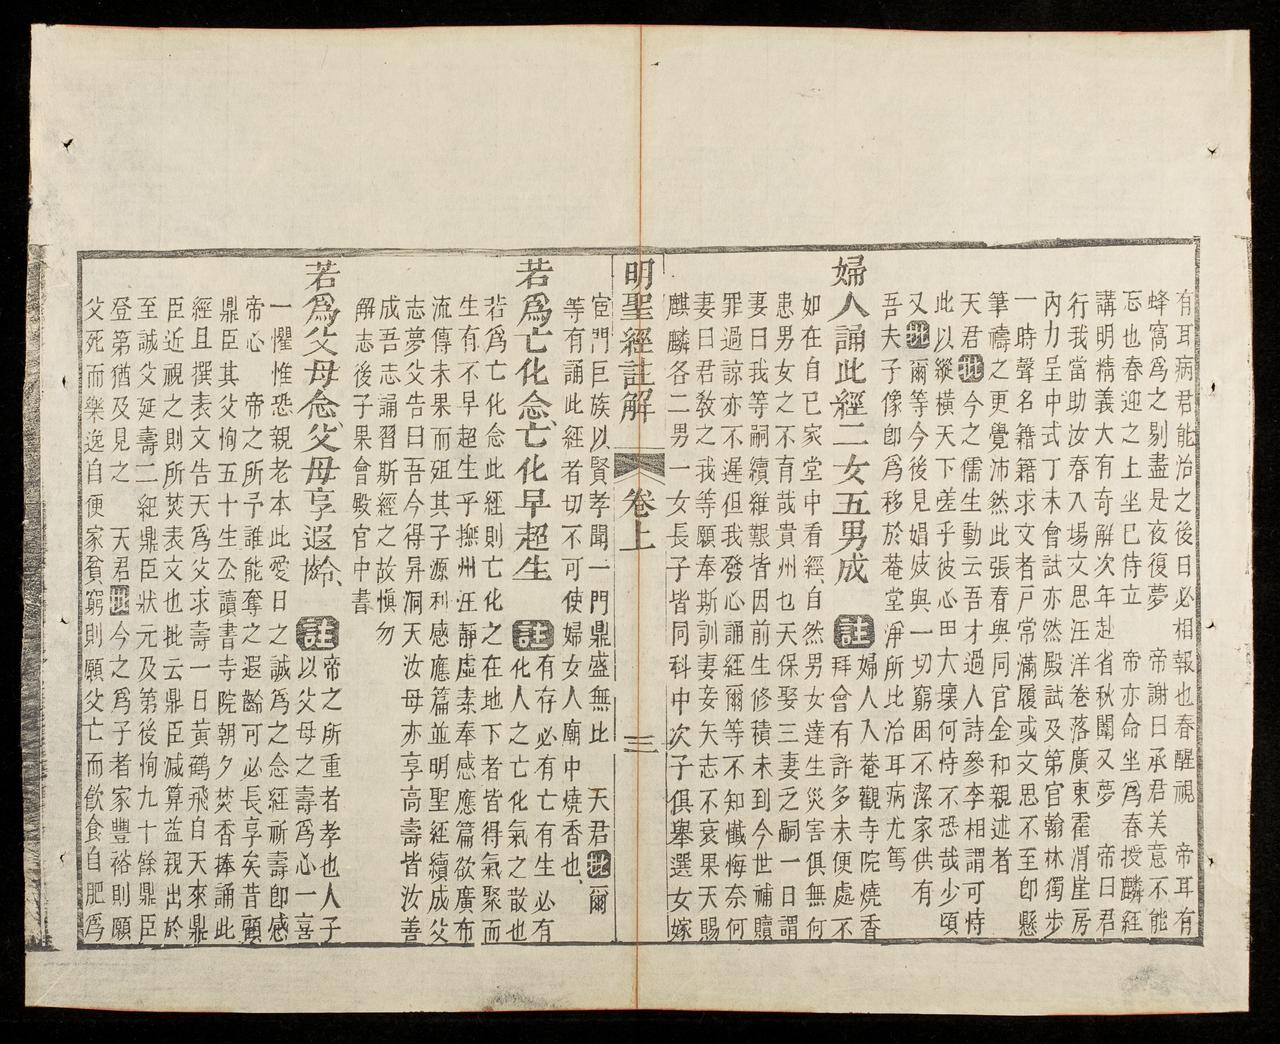 有耳病君能治之後日必相報也春醒視　帝耳有
蜂窩爲之剔盡是夜復夢　帝謝曰承君美意不能
忘也春迎之上坐巳侍立　帝亦命坐爲春授麟經
講明精義大有奇解次年赴省秋闈又夢　帝曰君
行我當助汝春入場文思汪洋卷落廣東霍渭崖房
內力呈中式丁未會試亦然殿試及第官翰林獨步
一時聲名籍籍求文者戸常滿履或文思不至卽懸
筆禱之更覺沛然此張春與同官金和親述者
天君批今之儒生動云吾才過人詩參李相謂可恃
此以縱橫天下差乎彼心田大壞何恃不恐哉少頃
又批爾等今後見娼妓與一切窮困不潔家供有
吾夫子像卽爲移於菴堂淨所比治耳病尤篤
婦人誦此經二女五男成　註婦人入菴觀寺院燒香
拜會有許多未便處不
如在自已家堂中看經、自然男女達生災害俱無何
患男女之不育哉貴州也天保娶三妻乏嗣一日謂
妻曰我等嗣續維艱皆因前生修積未到今世補贖
罪過諒亦不遲但我發心誦經爾等不知懺悔奈何
妻曰君敎之我等願奉斯訓妻妾矢志不衰果天賜
麒麟各二男一女長子皆同科中次子俱舉選女嫁
明聖經註解　卷上　三
宦門巨族以賢孝聞一門鼎盛無比　天君批爾
等有誦此經者切不可使婦女人廟中燒香也、
若爲亡化念、亡化早超生　註有存必有亡有生必有
化人之亡化氣之散也
若爲亡化念此經則亡化之在地下者皆得氣聚而
生有不早超生乎撫州汪靜虛素奉感應篇欲廣布
流傳未果而殂其子源利感應篇並明聖經續成父
志夢父告曰吾今得昇洞天汝母亦享高壽皆汝善
成吾志誦習斯經之故愼勿
解志後子果會殿官中書
若爲父母念、父母享遐齡、　註帝之所重者孝也人子
以父母之壽爲心一喜
一懼惟恐親老本此愛日之誠爲之念經祈壽卽感
帝心　帝之所予誰能奪之遐齡可必長享矣昔顧
鼎臣其父恂五十生公讀書寺院朝夕焚香捧誦此
經且撰表文告天爲父求壽一日黃鶴飛自天來鼎
臣近視之則所焚表文也批云鼎臣減算益親出於
至誠父延壽二紀鼎臣狀元及第後恂九十餘鼎臣
登第猶及見之　天君批今之爲子者家豐裕則願
父死而樂逸自便家貧窮則願父亡而飲食自肥爲